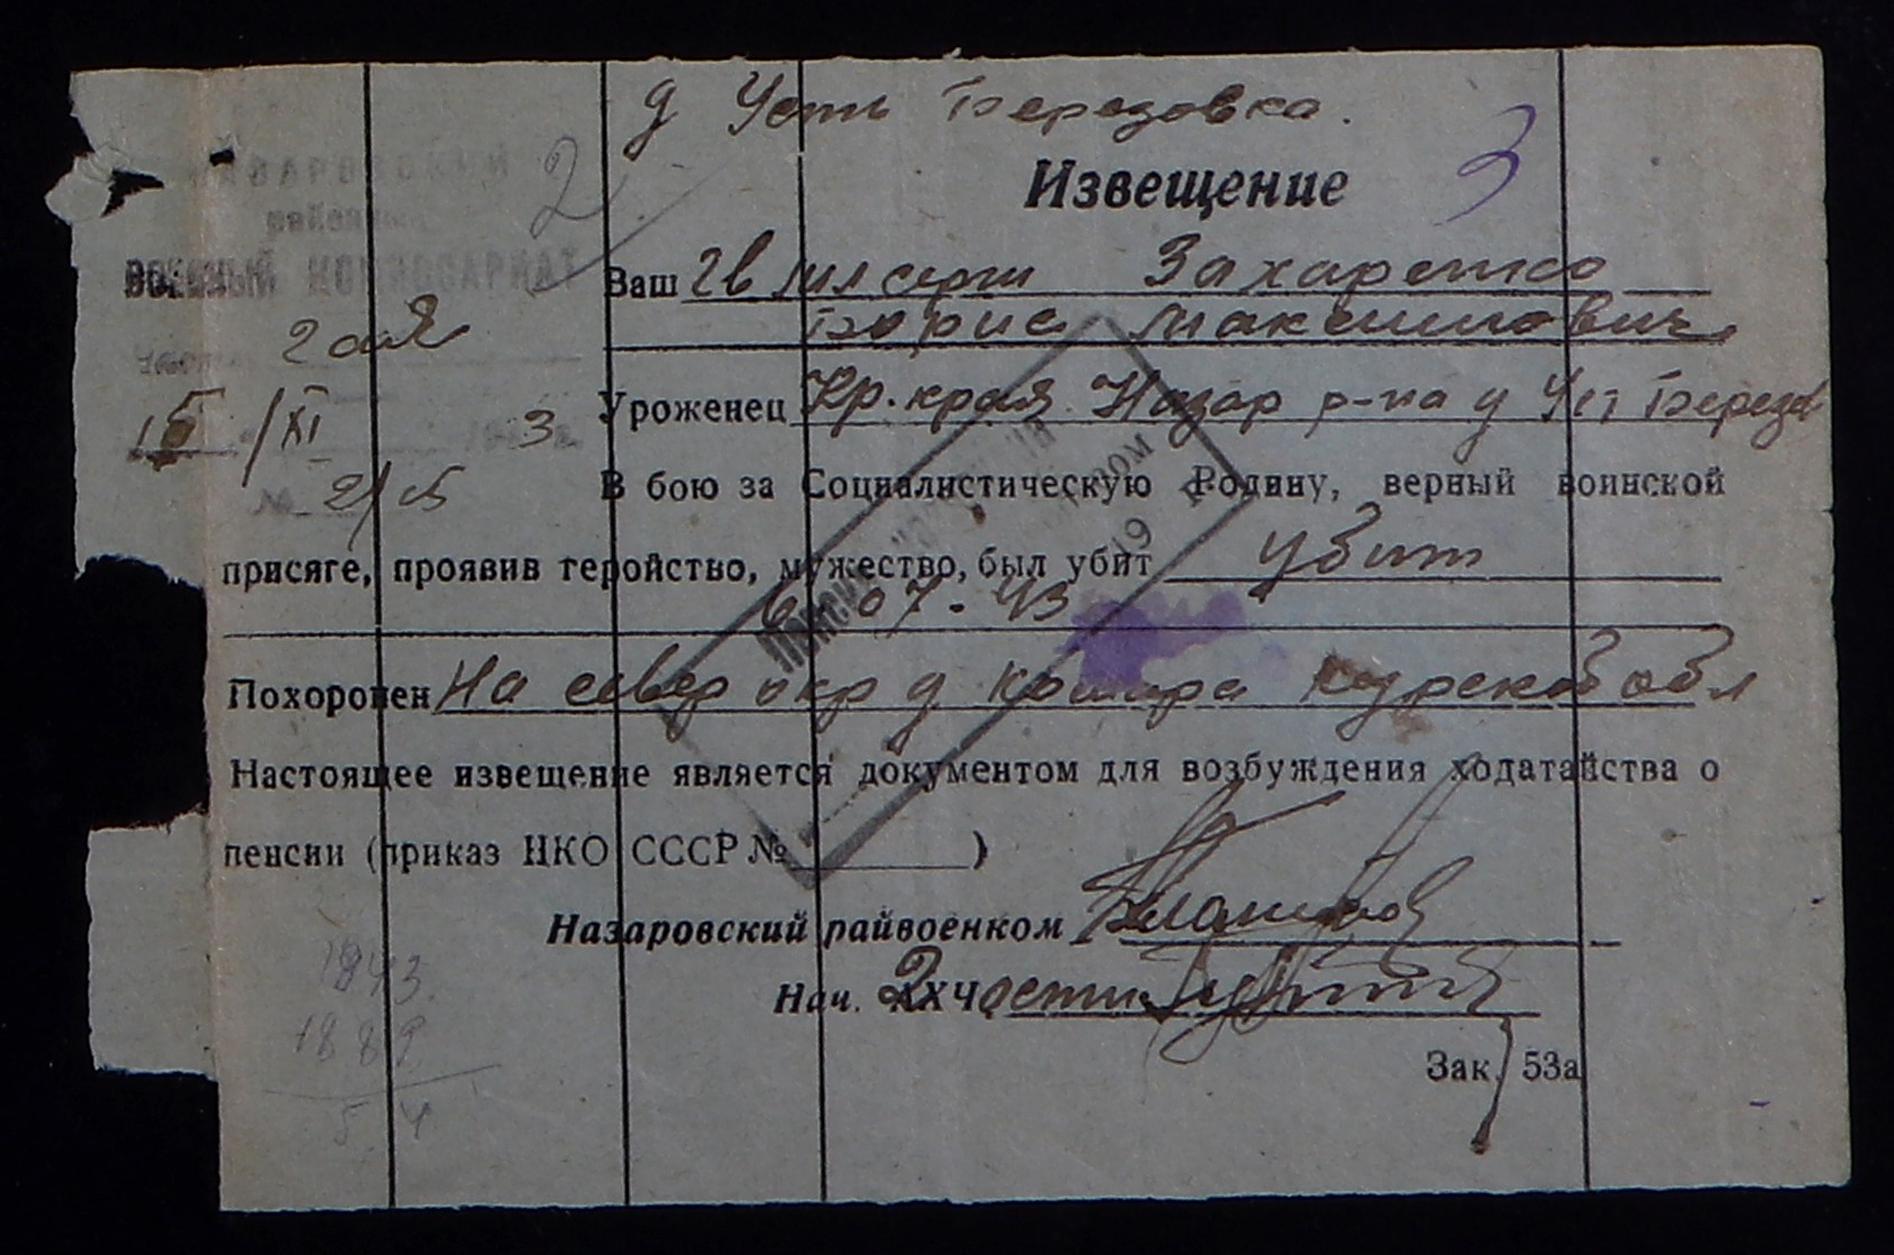 д Усть Березовка.
НАЗАРОВСКИЙ
районный
ВОЕННЫЙ КОМИССАРИАТ
2
Извещение
3
Ваш гв мл серж Захаренко
Борис Максимович
часть 2 ая
15/XI 3
№ 2/
Уроженец Кр. края Назар р-на д Уст Березов
В бою за Социалистическую Родину, верный воинской
присяге, проявив геройство, мужество, был убит убит
6.07.43
Похоронен На север окр д Кошара Курской обл
Настоящее извещение является документом для возбуждения ходатайства о
пенсии (приказ НКО СССР № )
Назаровский райвоенком
Нач. 2 части
Зак. 53а
1943
1889
54
19 г.